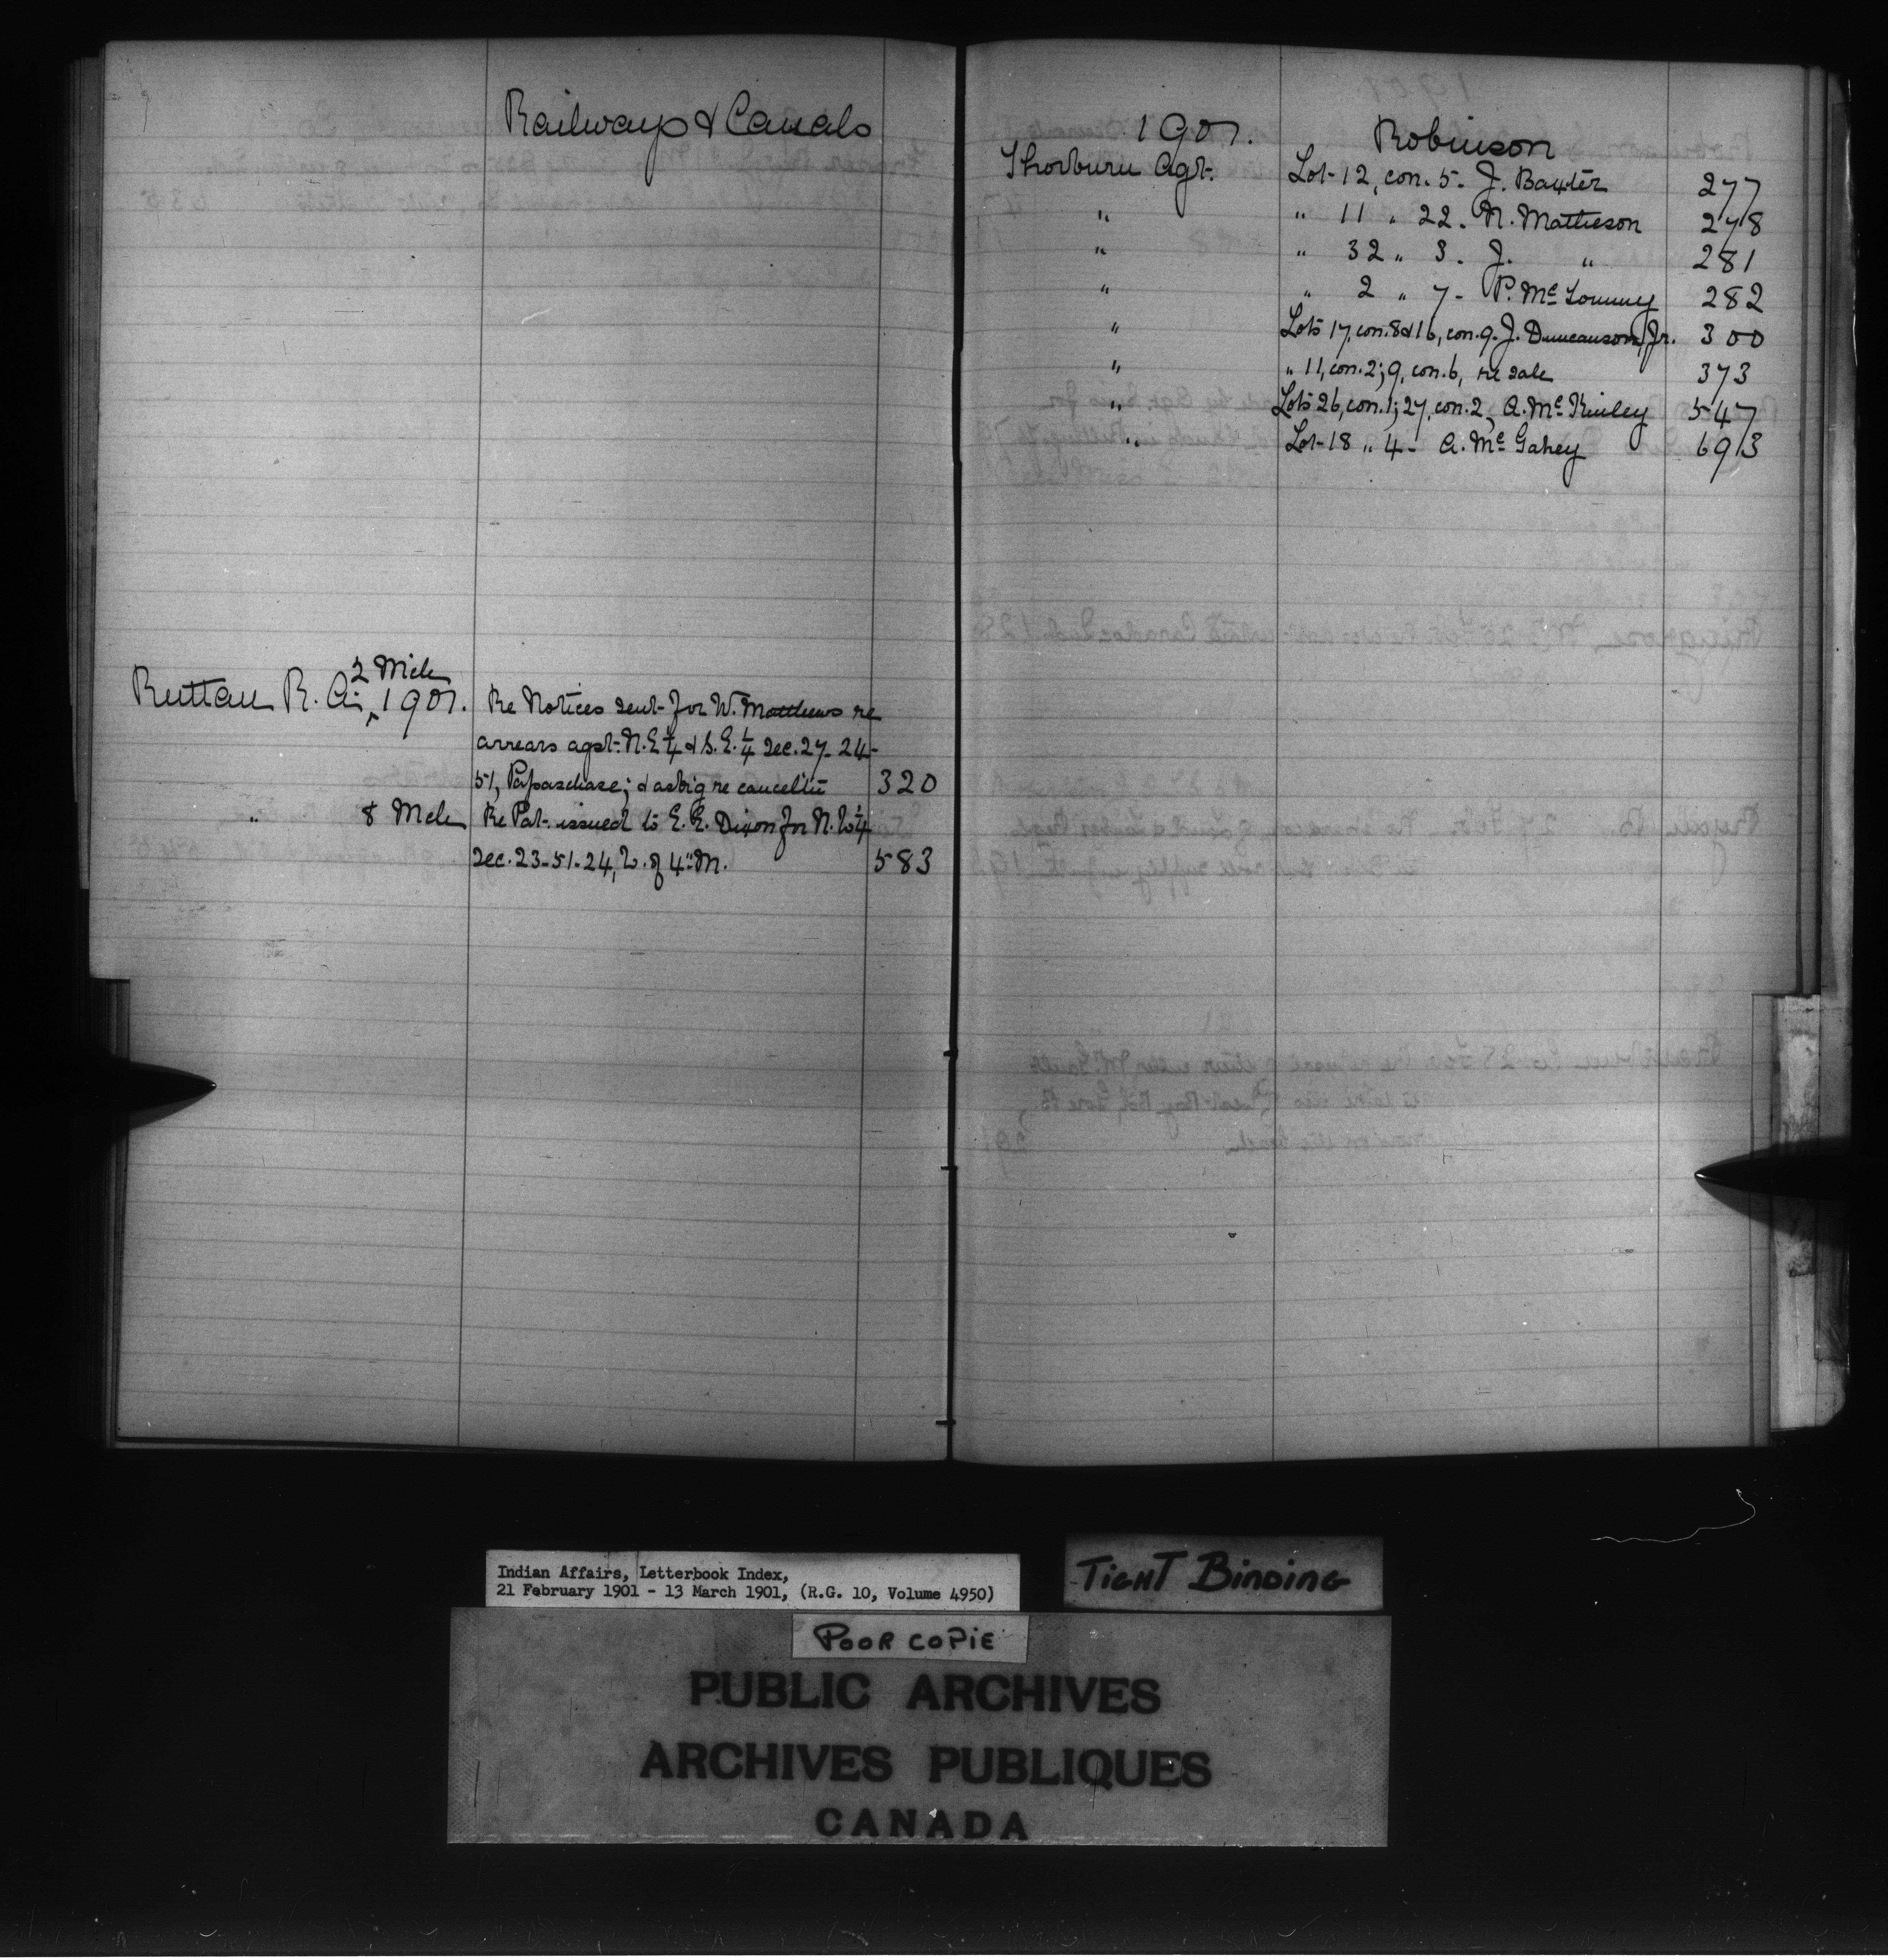 Railways & Canals
2 Mch
Ruttan R. A., 1901. Re Notices sent for W. Matthews re
arrears agst. N.E ¼ & S.E. ¼ Sec. 27-24-
51, Papaschase; & ask'g re cancell'n 320
" 8 Mch Re Pat. issued to E. E. Dixon for N. W ¼
Sec. 23-51-24, W. of 4" M. 583
1901. Robinson
Thorburn Agt. Lot 12, con. 5. J. Baxter 277
" " 11 " 22. N. Matheson 278
" " 32 " 3. J. " 281
" " 2 " 7 - P. Mc 282
" Lots 17, con. 8 & 16, con. 9. J. Duncanson, Jr. 300
" " 11, con. 2; 9, con. 6, re sale 373
" Lots 26, con. 1; 27, con. 2, A. McKinley 547
" Lot 18 " 4 - A. McGahey 693
Indian Affairs, Letterbook Index,
21 February 1901 - 13 March 1901, (R.G. 10, Volume 4950)
TIGHT BINDING
POOR COPIE
PUBLIC ARCHIVES
ARCHIVES PUBLIQUES
CANADA